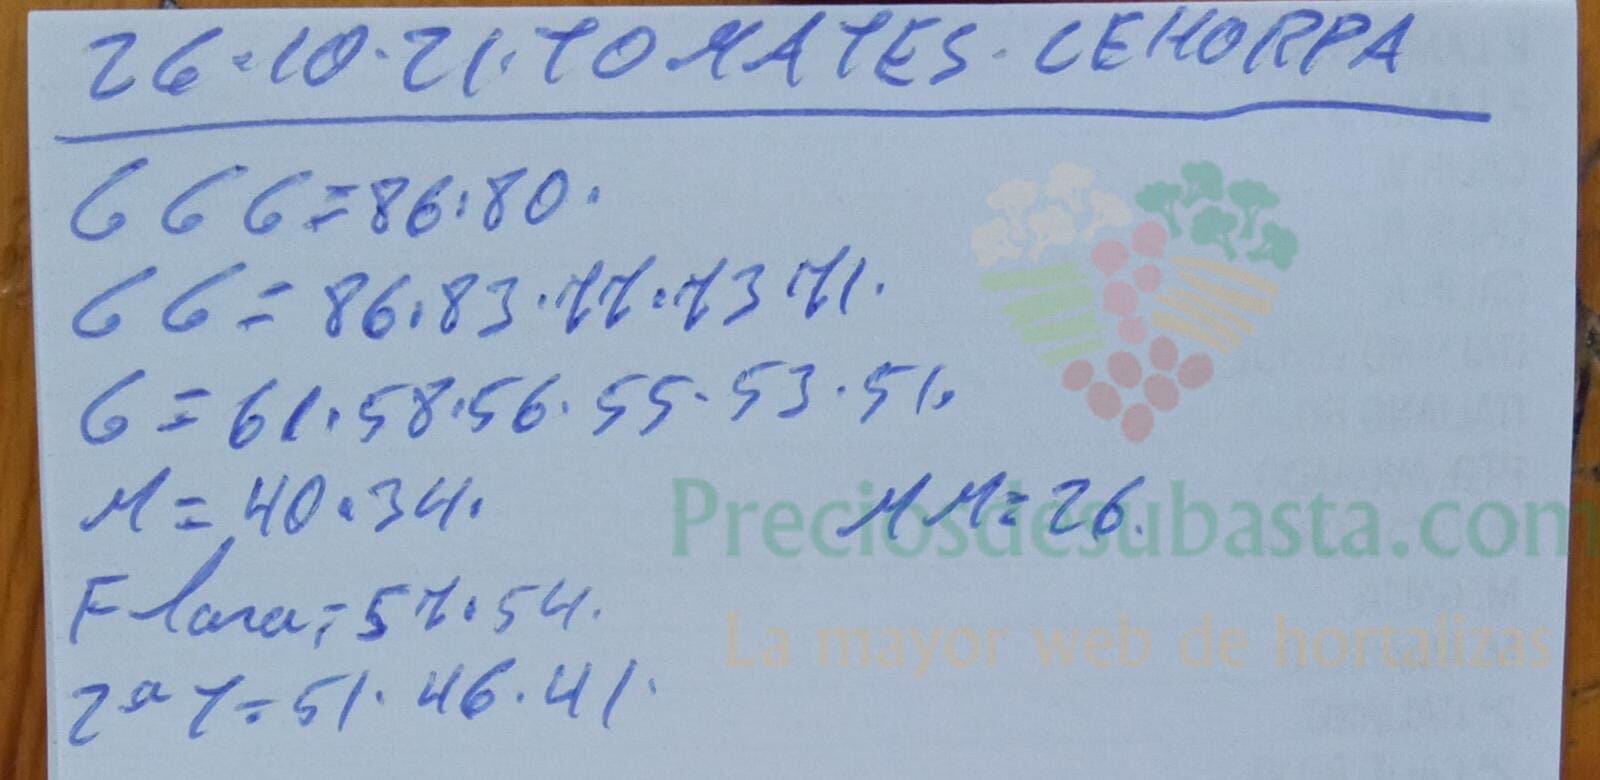 26.10.21. TOMATES. CEHORPA
GGG=86.80.
GG=86.83.77.73 71.
G=61.58.56.55.53.51.
M=40.34. MM=26.
Preciosdesubasta.com
F lara=57.54.
La mayor web de hortalizas
2ª T=51.46.41.